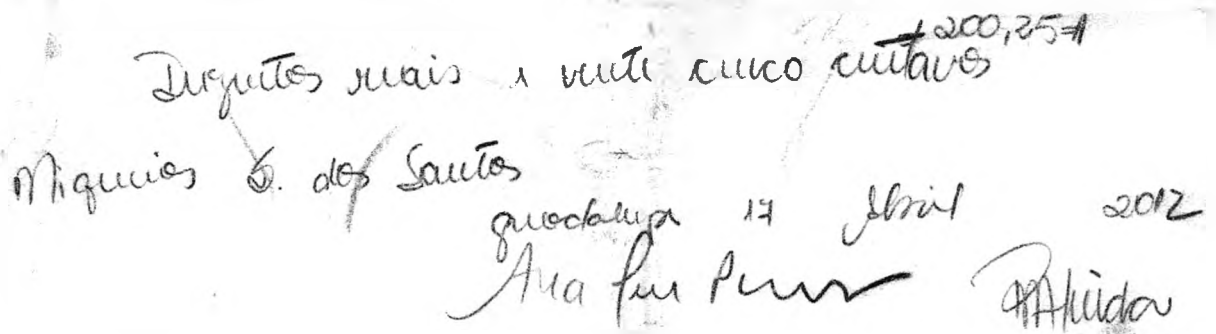 #200,25#
Duzentos reais e vinte cinco centavos
Miqueias S. dos Santos
guadalupe 17 Abril 2012
Ana